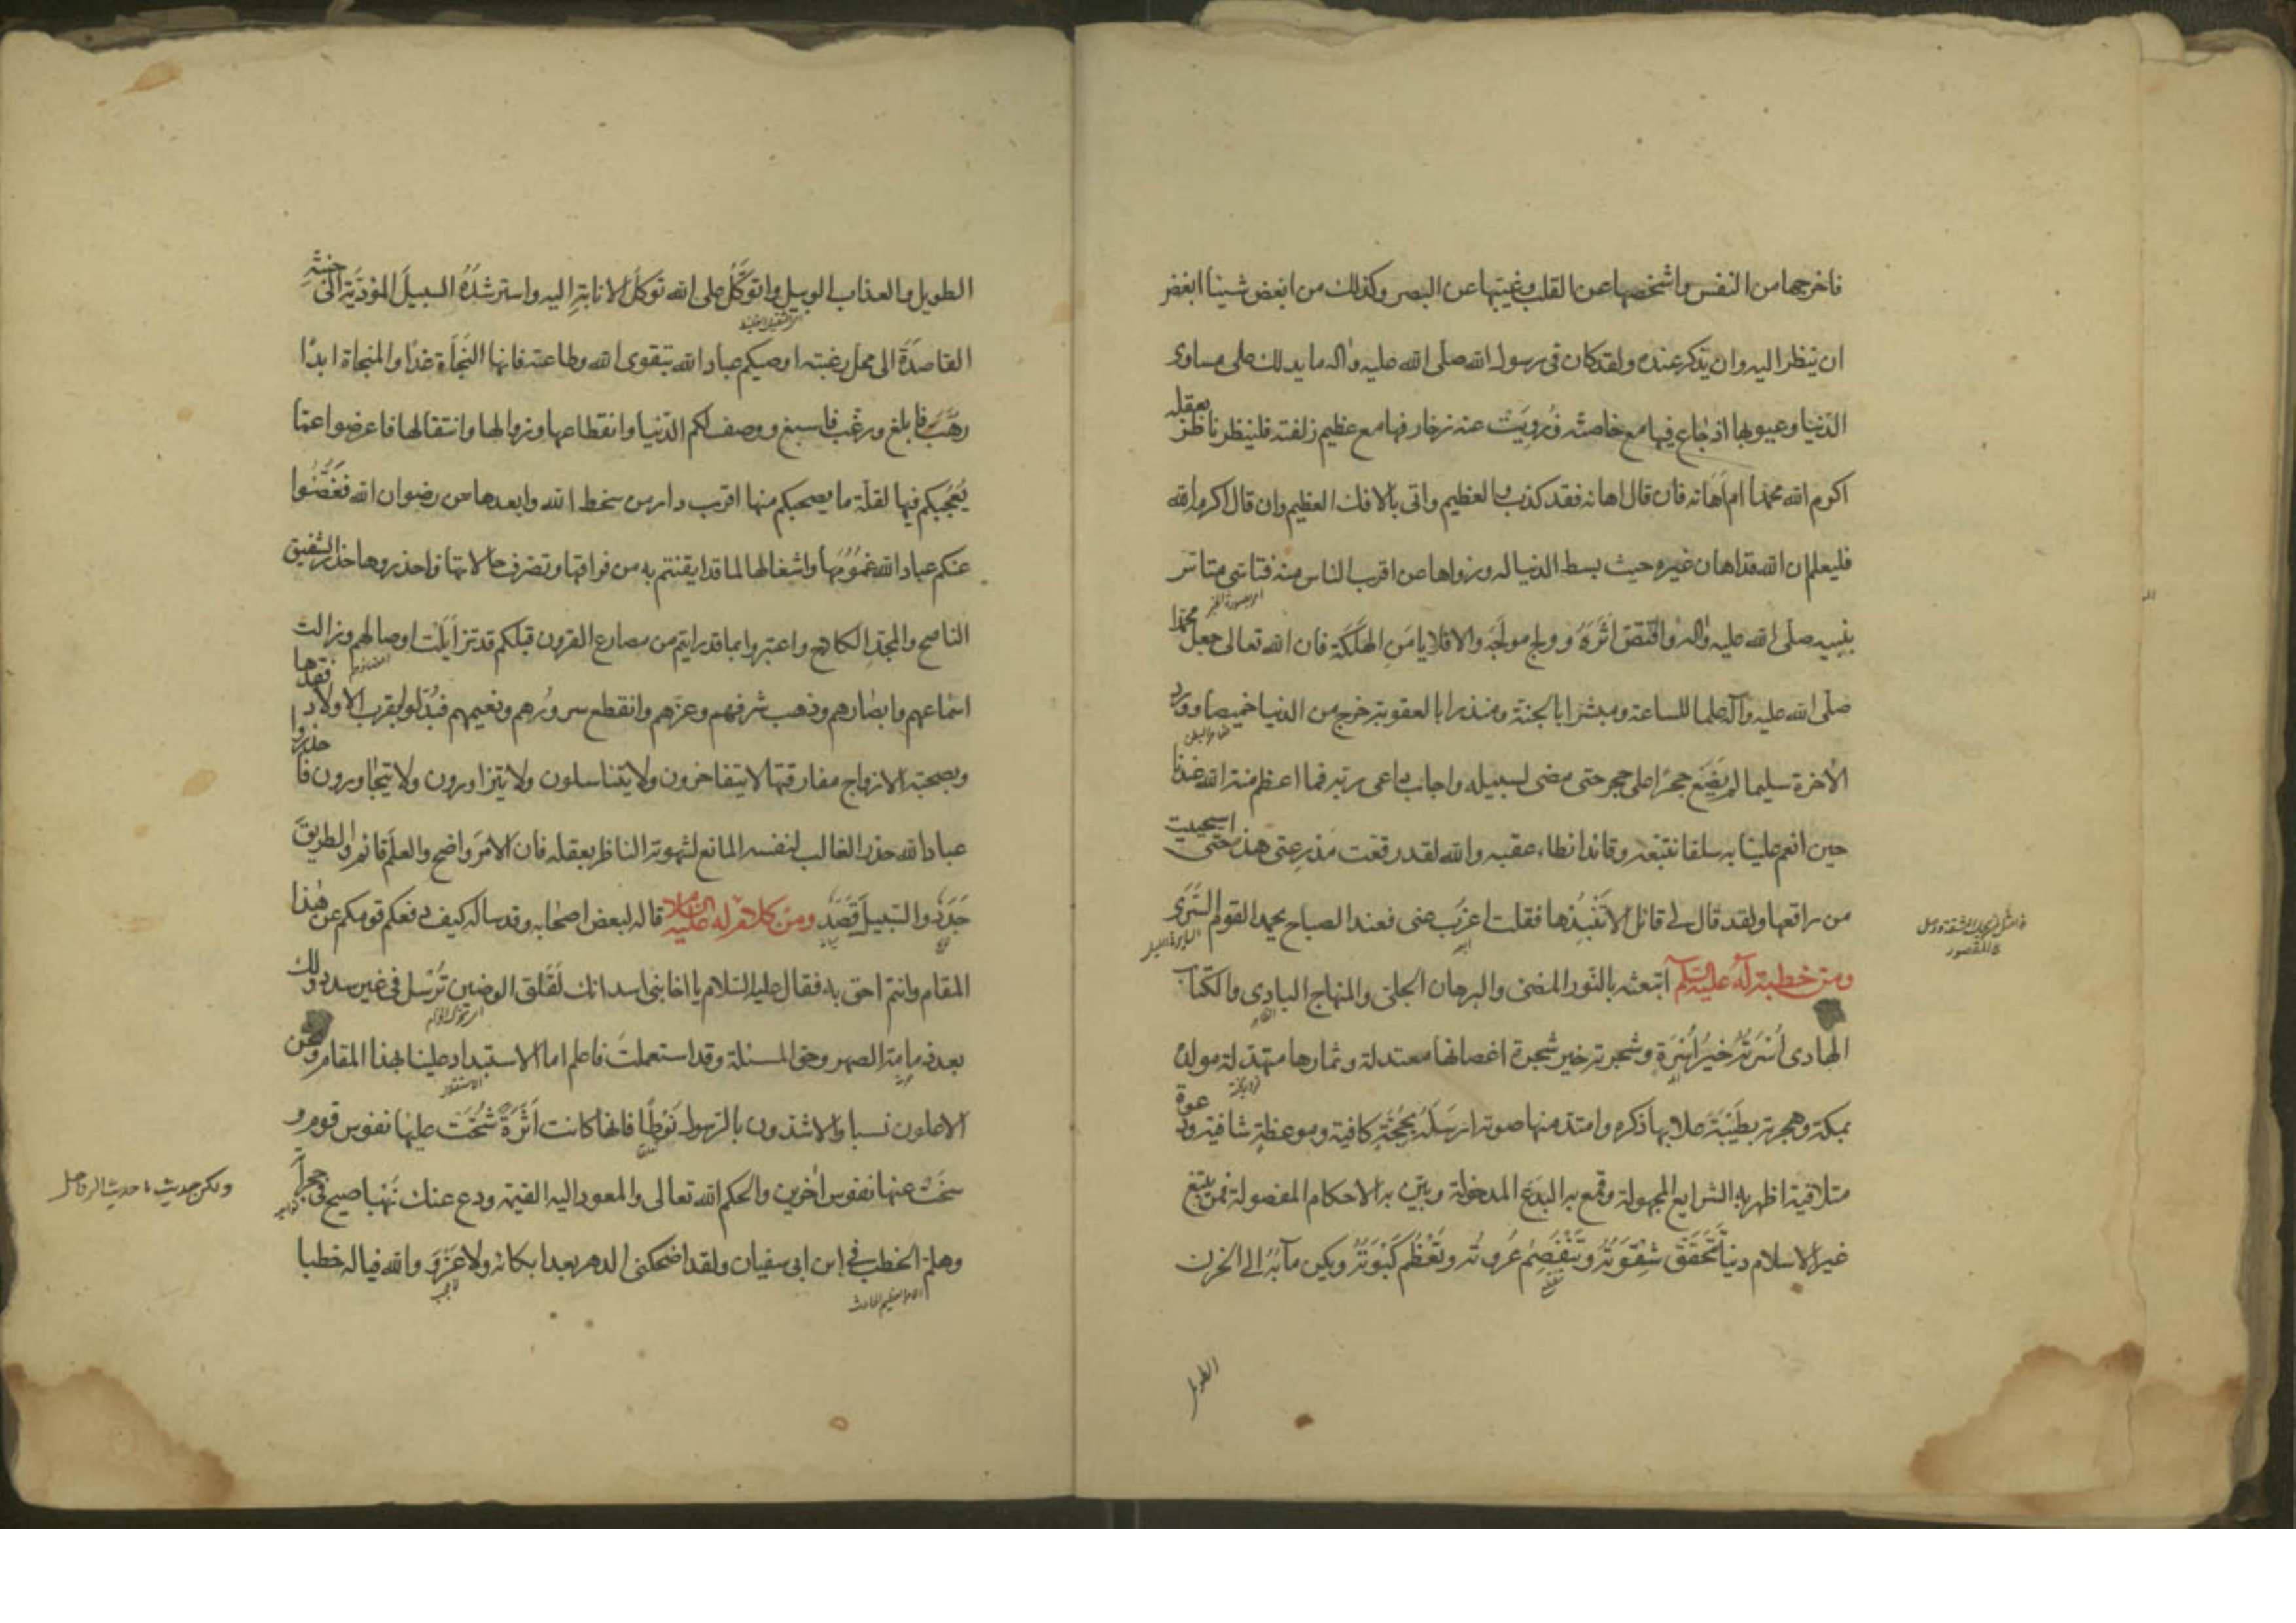 فاخرجها من النفس واشخصها عن القلب وغيبها عن البصر وكذلك من ابغض شيئا ابغض
ان ينظر اليه وان يذكر عنده ولقد كان فى رسول الله صلى الله عليه واله ما يدلك على مساوى
الدنيا وعيوبها اذ جاع فيها مع خاصته وزويت عنه زخارفها مع عظيم زلفته فلينظر ناظر بعقله
اكرم الله محمدا ام اهانه فان قال اهانه فقد كذب والعظيم واتى بالافك العظيم وان قال اكرمه الله
فليعلم ان الله قد اهان غيره حيث بسط الدنيا له وزواها عن اقرب الناس منه فتاسى متاس
بنبيه صلى الله عليه واله واقتص اثره وولج مولجه والا فلا يامن الهلكة فان الله تعالى جعل محمدا
صلى الله عليه وآله علما للساعة ومبشرا بالجنة ومنذرا بالعقوبة خرج من الدنيا خميصا وورد
الآخرة سليما لم يضع حجرا على حجر حتى مضى لسبيله واجاب داعى ربه فما اعظم منة الله عندنا
حين انعم علينا به سلفا نتبعه وقائدا نطاء عقبه والله لقد رقعت مدرعتى هذه حتى استحييت
من راقعها ولقد قال لى قائل الا تنبذها فقلت اعزب عنى فعند الصباح يحمد القوم السرى
ومن خطبة له عليه السلم ابتعثه بالنور المضئ والبرهان الجلى والمنهاج البادى والكتاب
الهادى اسرته خير اسرة وشجرته خير شجرة اغصانها معتدلة وثمارها متهدلة مولده
بمكة وهجرته بطيبة علا بها ذكره وامتد منها صوته ارسله بحجة كافية وموعظة شافية ودعوة
متلافية اظهر به الشرايع المجهولة وقمع به البدع المدخولة وبين به الاحكام المفصولة فمن يبتغ
غير الاسلام دينا تتحقق شقوته وتنفصم عروته وتعظم كبوته ويكن مآبه الى الحزن
الطويل
الطويل والعذاب الوبيل واتوكل على الله توكل الانابة اليه واسترشده السبيل المؤدية الى جنته
القاصدة الى محل رغبته اوصيكم عباد الله بتقوى الله وطاعته فانها النجاة غدا والمنجاة ابدا
رهب فابلغ ورغب فاسبغ ووصف لكم الدنيا وانقطاعها وزوالها وانتقالها فاعرضوا عما
يعجبكم فيها لقلة ما يصحبكم منها اقرب دار من سخط الله وابعدها من رضوان الله فغضوا
عنكم عباد الله غمومها واشغالها لما قد ايقنتم به من فراقها وتصرف حالاتها فاحذروها حذر الشفيق
الناصح والمجد الكادح واعتبروا بما قد رايتم من مصارع القرون قبلكم قد تزايلت اوصالهم وزالت
اسماعهم وابصارهم وذهب شرفهم وعزهم وانقطع سرورهم ونعيمهم فبدلوا بقرب الاولاد فقدها
وبصحبة الازواج مفارقتها لا يتفاخرون ولا يتناسلون ولا يتزاورون ولا يتجاورون فاحذروا
عباد الله حذر الغالب لنفسه المانع لشهوته الناظر بعقله فان الامر واضح والعلم قائم والطريق
جدد والسبيل قصد ومن كلام له عليه السلام قاله لبعض اصحابه وقد ساله كيف دفعكم قومكم عن هذا
المقام وانتم احق به فقال عليه السلام يا اخا بنى اسد انك لقلق الوضين ترسل فى غير سدد ولك
بعد ذمامة الصهر وحق المسئلة وقد استعملت فاعلم اما الاستبداد علينا بهذا المقام ونحن
الاعلون نسبا والاشدون بالرسول نوطا فانها كانت اثرة شحت عليها نفوس قوم و
سخت عنها نفوس آخرين والحكم الله تعالى والمعود اليه القيمة ودع عنك نهبا صيح فى حجراته
ولكن حديث ما حديث الرواحل
وهلم الخطب فى ابن ابى سفيان ولقد اضحكنى الدهر بعد ابكائه ولا غرو والله فيا له خطبا